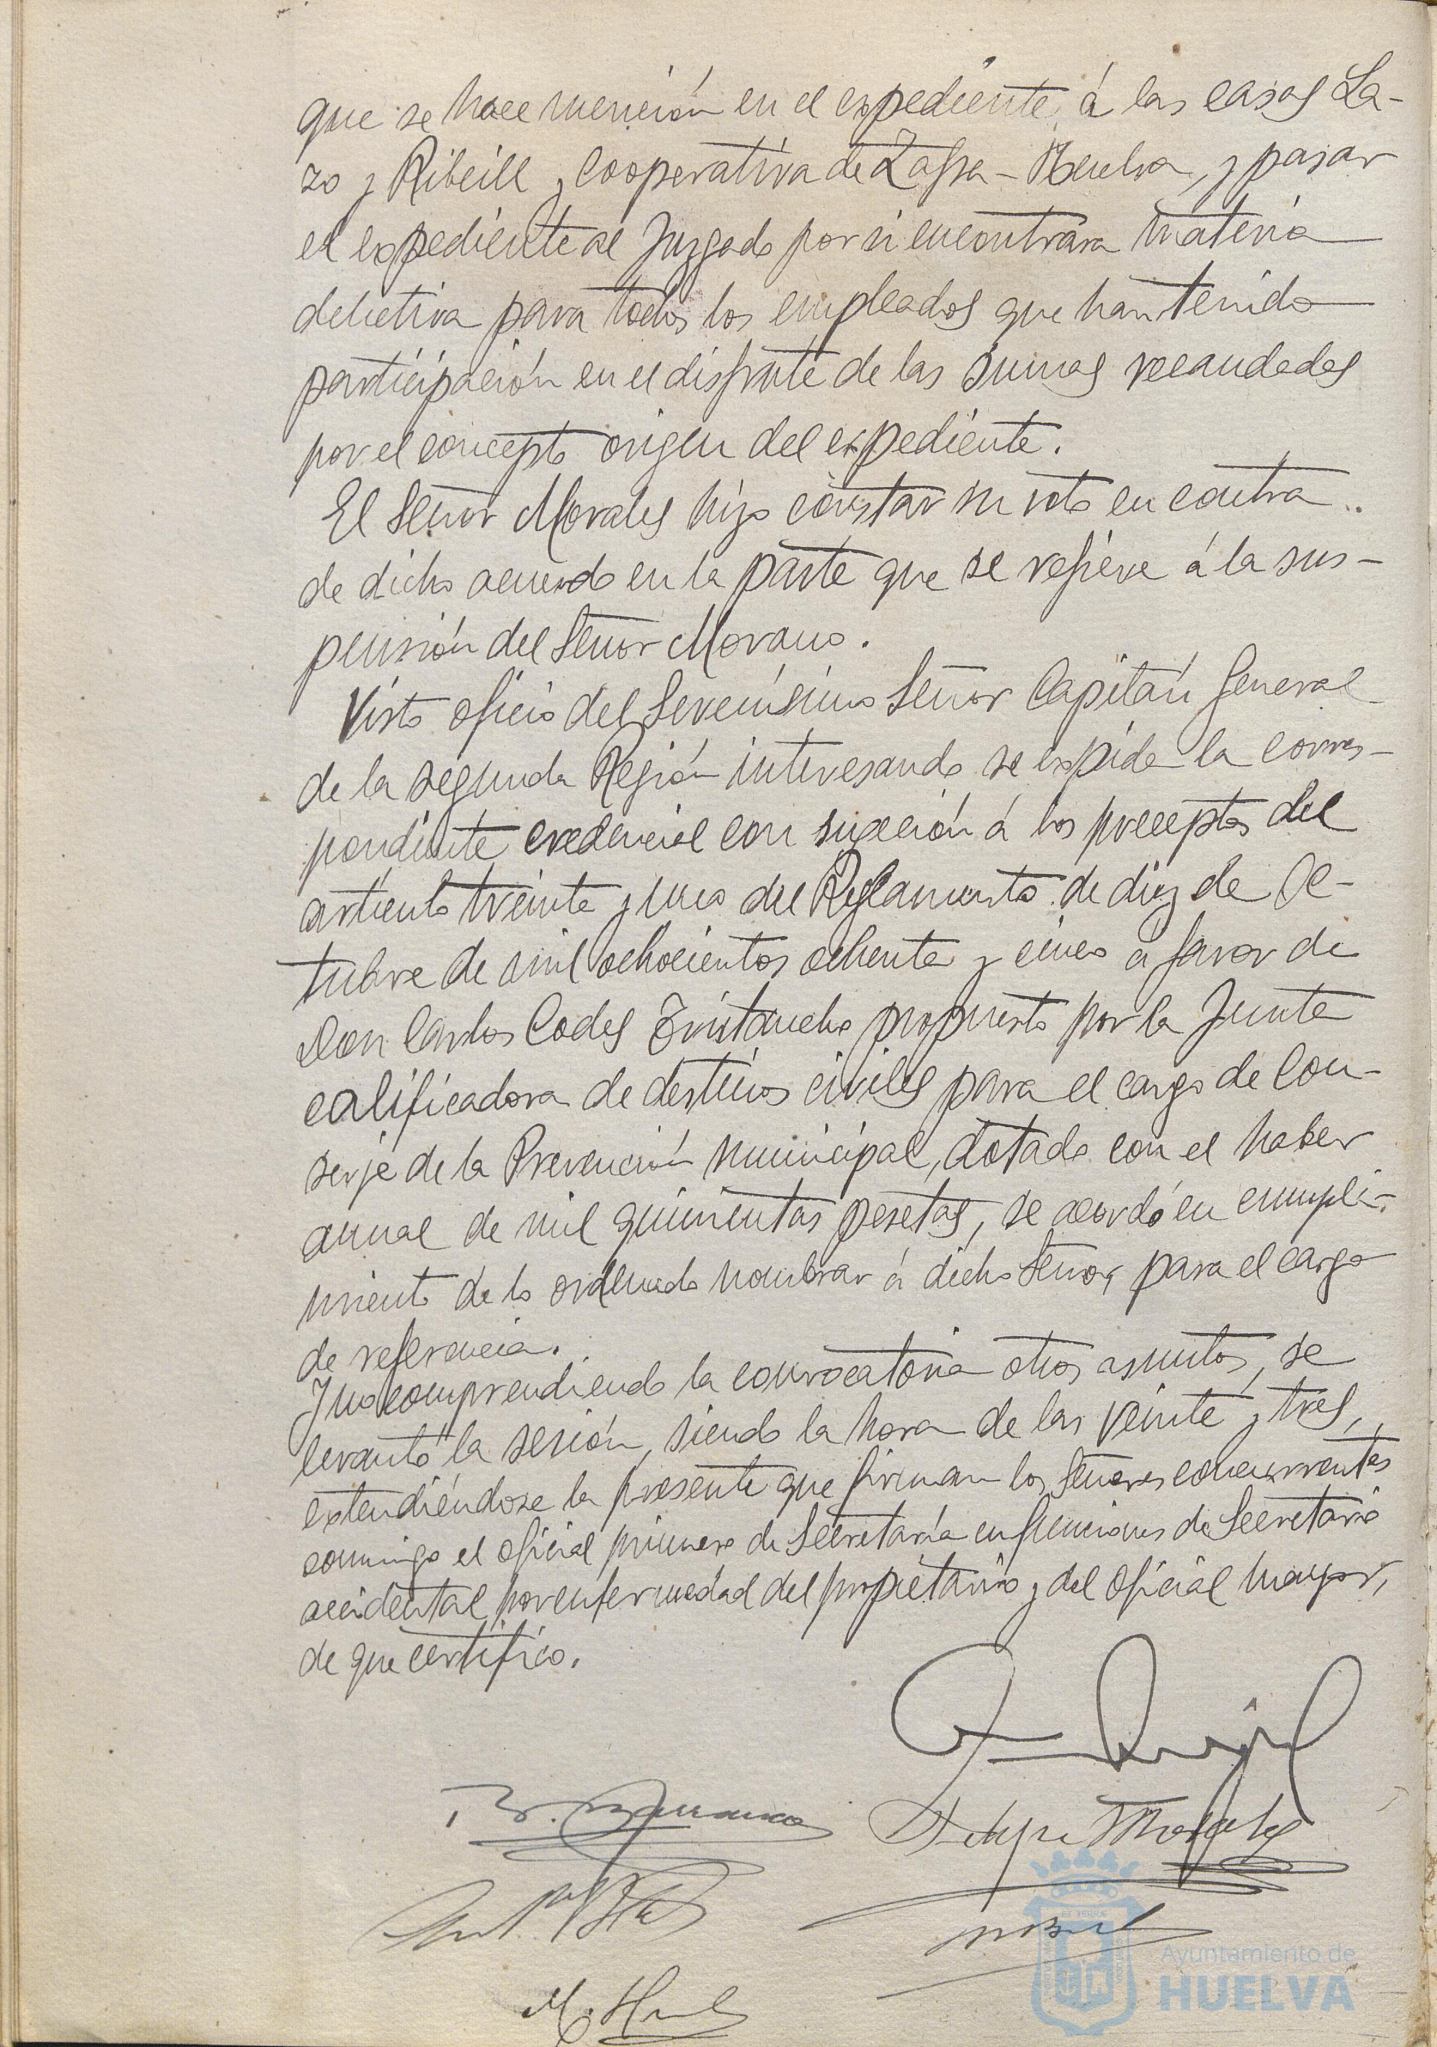 que se hace mención en el expediente á las casas La-
zo y Ribeill y Cooperativa de Zafra-Huelva, y pasar
el expediente al Juzgado por si encontrara materia
delictiva para todos los empleados que han tenido
participación en el disfrute de las sumas recaudadas
por el concepto origen del expediente.
El Señor Morales hizo constar su voto en contra
de dicho acuerdo en la parte que se refiere á la sus-
pensión del Señor Morano.
Visto oficio del Serenísimo Señor Capitán General
de la segunda Región interesando se expida la corres-
pondiente credencial con sujeción á los preceptos del
artículo treinta y uno del Reglamento de diez de Oc-
tubre de mil ochocientos ochenta y cinco a favor de
Don Carlos Codes Tristancho propuesto por la Junta
calificadora de destinos civiles para el cargo de Con-
serje de la Prevención municipal, dotado con el haber
anual de mil quinientas pesetas, se acordó en cumpli-
miento de lo ordenado nombrar á dicho Señor, para el cargo
de referencia.
Y no comprendiendo la convocatoria otros asuntos, se
levantó la sesión, siendo la hora de las veinte y tres,
extendiéndose la presente que firman los Señores concurrentes
conmigo el oficial primero de Secretaría en funciones de Secretario
accidental por enfermedad del propietario y del oficial mayor,
de que certifico.
Felipe Morales
Ayuntamiento de
HUELVA